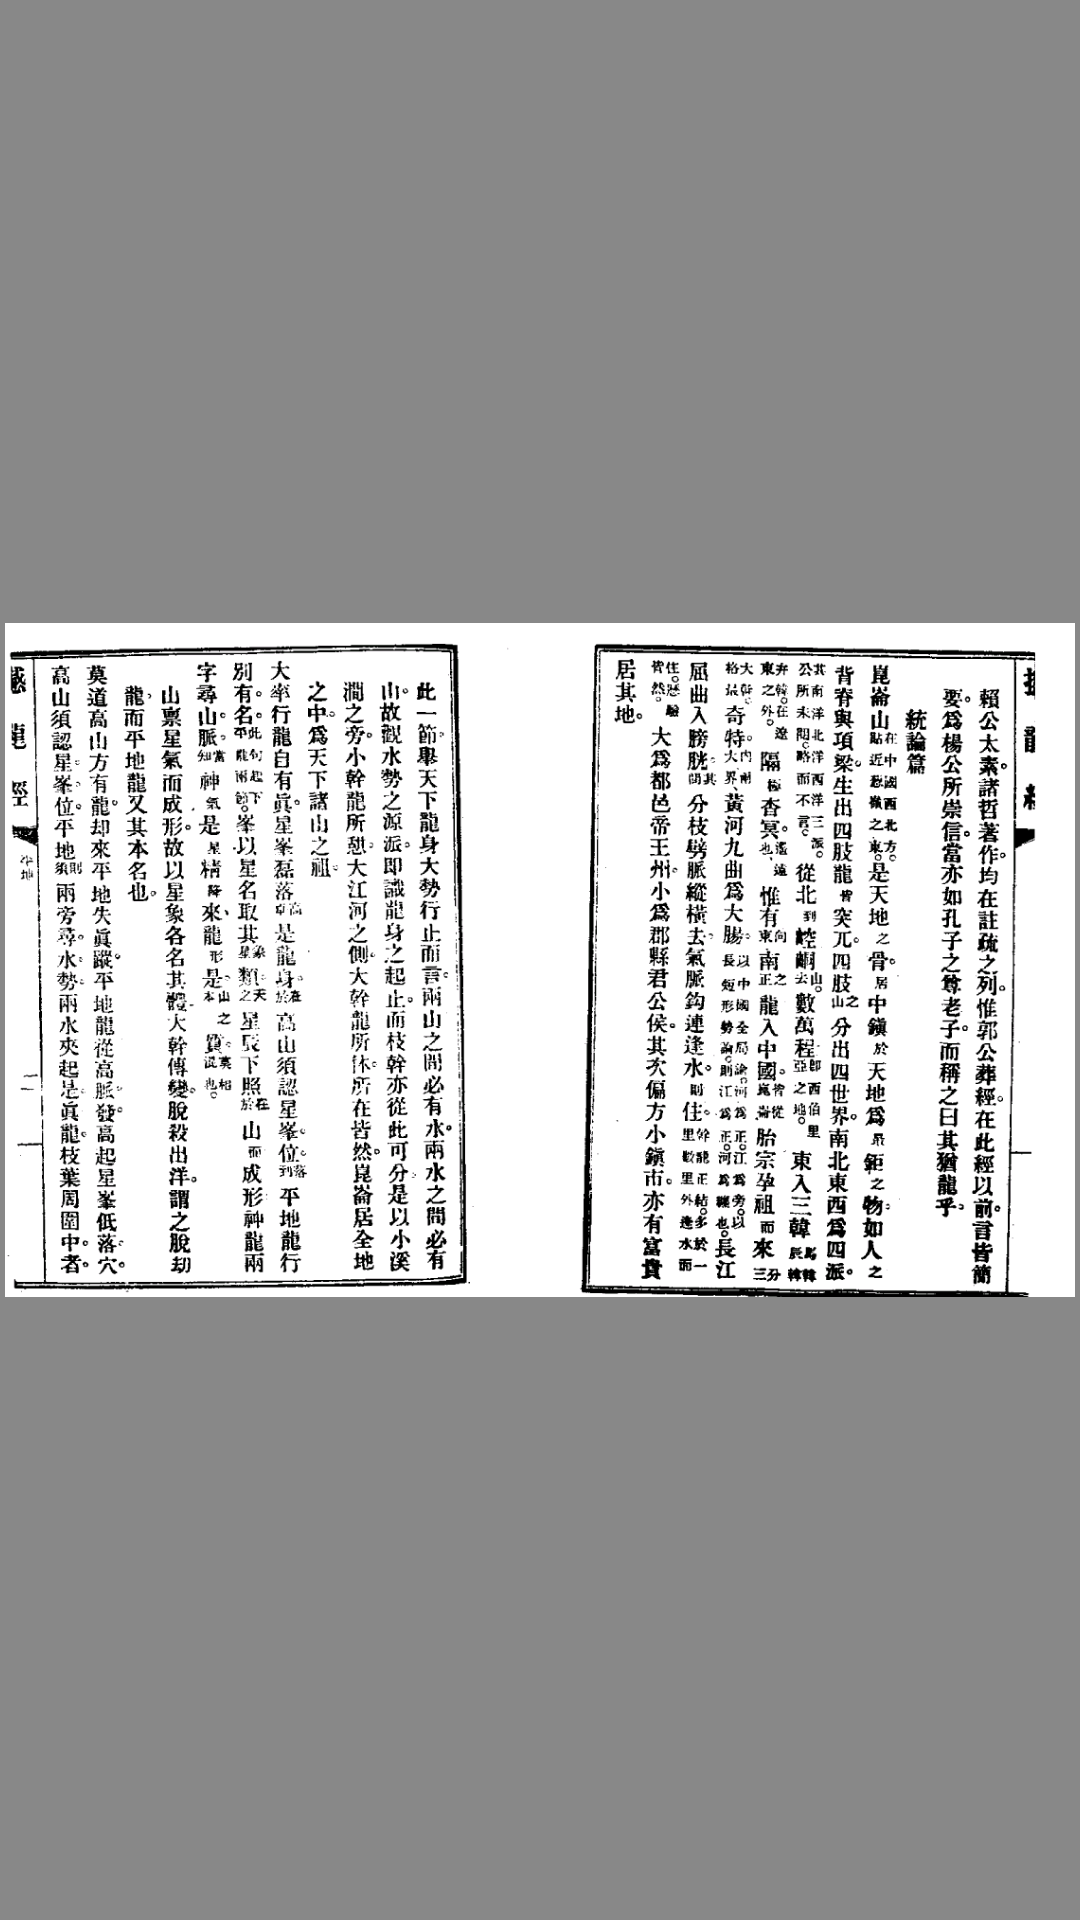 賴公太素諸哲著作。均在註疏之列。惟郭公葬經。在此經以前。言皆簡
要。爲楊公所崇信。當亦如孔子之尊老子。而稱之曰其猶龍乎。
統論篇
崑崙山在中國西北方。貼近葱嶺之東。是天地之骨。居中鎮於天地爲最鉅之物。如人之
背脊與項梁。生出四肢龍皆突兀。四肢之山分出四世界。南北東西爲四派。
其南洋北洋西洋三派。公所未詳。略而不言。從北到崆峒山。去數萬程即西伯里亞之地。東入三韓馬韓辰韓
弁韓。在遼東之外。隔極杳冥。遙遠也。惟有向東南之正龍入中國。皆從崑崙胎宗孕祖而來三分
大幹。格最奇特。內兩大界、黃河九曲爲大腸。以中國全局論。河爲正。江爲旁。以長短形勢論。則江爲正。河爲纏也。長江
屈曲入膀胱。其間分枝劈脈縱橫去。氣脈鈎連逢水。則住。幹龍正結。多於一里數里外進水而
住。歷驗皆然。大爲都邑帝王州。小爲郡縣君公侯。其次偏方小鎮市。亦有富貴
居其地。
此一節。舉天下龍身大勢行止而言。兩山之間必有水。兩水之間必有
山。故觀水勢之源派。即識龍身之起止。而枝幹亦從此可分。是以小溪
澗之旁。小幹龍所憩。大江河之側。大幹龍所休。所在皆然。崑崙居全地
之中。爲天下諸山之祖。
大率行龍自有眞。星峯磊落是龍身。在於高山須認星峯。位。落到平地龍行
別有。名。此句起下平龍兩節。峯以星名取其類。天之星辰下照在於山而成形神龍兩
字尋山脈。當知神氣是星精降來、龍形是山之本質。
山禀星氣而成形。故以星象各名其體。大幹傳變。脫殺出洋。謂之脫劫
龍。而平地龍又其本名也。
莫道高山方有龍。却來平地失眞蹤。平地龍從高脈發。高起星峯低落穴。
高山須認星峯。位。平地則須兩旁尋水勢。兩水夾起是眞龍。枝葉周圍中者。
龍經